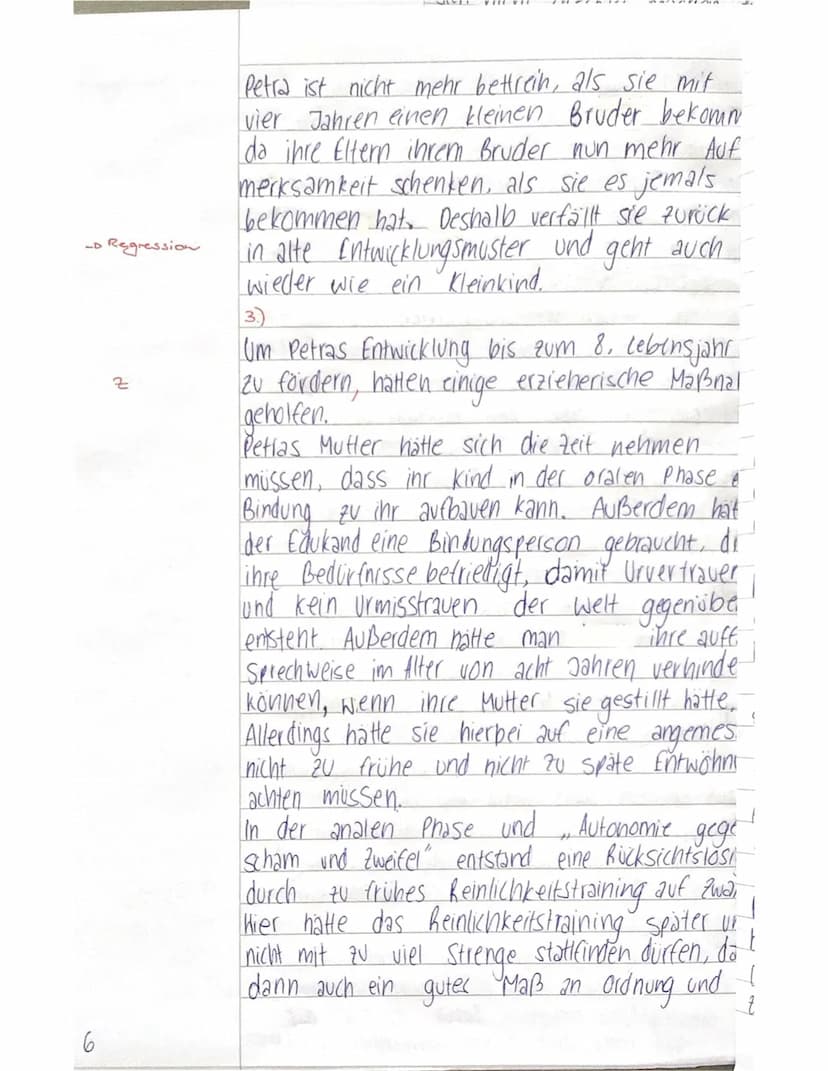 Petra ist nicht mehr bettrein, als sie mit
vier Jahren einen kleinen Bruder bekomm
da ihre Eltern ihrem Bruder nun mehr Auf
merksamkeit schenken, als sie es jemals
bekommen hat. Deshalb verfällt sie zurück
-> Regression
in alte Entwicklungsmuster und geht auch
wieder wie ein Kleinkind.
3.)
Um Petras Entwicklung bis zum 8. Lebensjahr
Z
zu fördern, hätten einige erzieherische Maßna
geholfen.
Petras Mutter hätte sich die Zeit nehmen
müssen, dass ihr Kind in der oralen Phase e
Bindung zu ihr aufbauen kann. Außerdem hät
der Edukand eine Bindungsperson gebraucht, di
ihre Bedürfnisse befriedigt, damit Urvertrauen
und kein Urmisstrauen der Welt gegenübe
entsteht. Außerdem hätte man ihre auff
Sprechweise im Alter von acht Jahren verhinde
können, wenn ihre Mutter sie gestillt hätte.
Allerdings hätte sie hierbei auf eine angemes
nicht zu frühe und nicht zu späte Entwöhn
achten müssen.
In der analen Phase und „Autonomie gege
Scham und Zweifel“ entstand eine Rücksichtslosi
durch zu frühes Reinlichkeitstraining auf Zwa
Hier hätte das Reinlichkeitstraining später un
nicht mit zu viel Strenge stattfinden dürfen, da
dann auch ein gutes Maß an Ordnung und
6